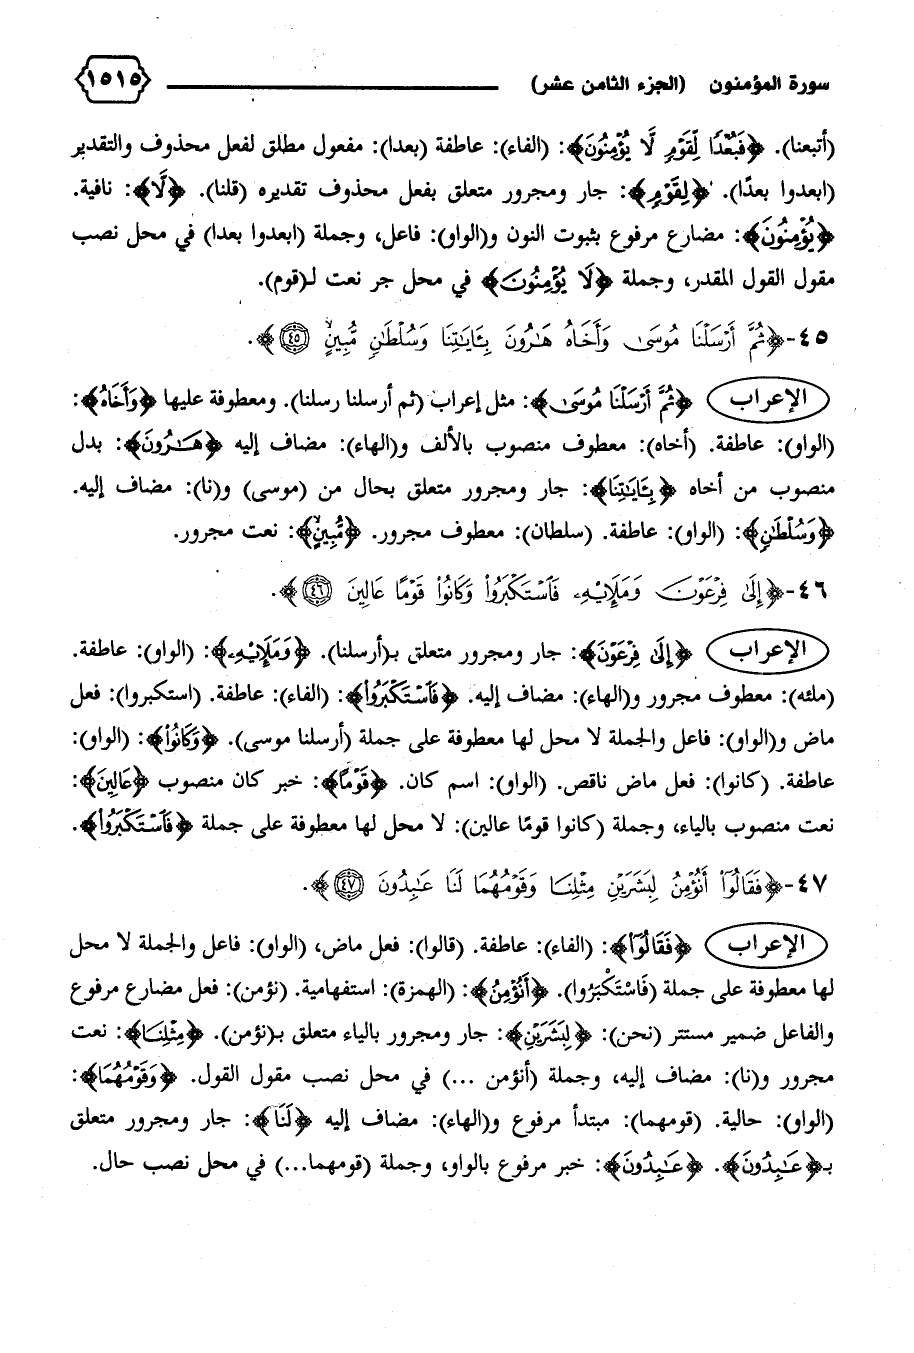 سورة المؤمنون (الجزء الثامن عشر) ١٥١٥
(أتبعنا). ﴿فَبُعْدًا لِّقَوْمٍ لَّا يُؤْمِنُونَ﴾: (الفاء): عاطفة (بعدا): مفعول مطلق لفعل محذوف والتقدير
(ابعدوا بعدًا). ﴿لِقَوْمٍ﴾: جار ومجرور متعلق بفعل محذوف تقديره (قلنا). ﴿لَّا﴾: نافية.
﴿يُؤْمِنُونَ﴾: مضارع مرفوع بثبوت النون و(الواو): فاعل، وجملة (ابعدوا بعدا) في محل نصب
مقول القول المقدر، وجملة ﴿لَا يُؤْمِنُونَ﴾ في محل جر نعت لـ(قوم).
٤٥-﴿ثُمَّ أَرْسَلْنَا مُوسَىٰ وَأَخَاهُ هَـٰرُونَ بِـَٔايَـٰتِنَا وَسُلْطَـٰنٍ مُّبِينٍۙ ٤٥﴾.
الإعراب ﴿ثُمَّ أَرْسَلْنَا مُوسَىٰ﴾: مثل إعراب (ثم أرسلنا رسلنا). ومعطوفة عليها ﴿وَأَخَاهُ﴾:
(الواو): عاطفة. (أخاه): معطوف منصوب بالألف و(الهاء): مضاف إليه ﴿هَـٰرُونَ﴾: بدل
منصوب من أخاه ﴿بِـَٔايَـٰتِنَا﴾: جار ومجرور متعلق بحال من (موسى) و(نا): مضاف إليه.
﴿وَسُلْطَـٰنٍ﴾: (الواو): عاطفة. (سلطان): معطوف مجرور. ﴿مُّبِينٍۙ﴾: نعت مجرور.
٤٦-﴿إِلَىٰ فِرْعَوْنَ وَمَلَإِيْهِۦ فَٱسْتَكْبَرُوا۟ وَكَانُوا۟ قَوْمًا عَالِينَ ٤٦﴾.
الإعراب ﴿إِلَىٰ فِرْعَوْنَ﴾: جار ومجرور متعلق بـ(أرسلنا). ﴿وَمَلَإِيْهِۦ﴾: (الواو): عاطفة.
(ملئه): معطوف مجرور و(الهاء): مضاف إليه. ﴿فَٱسْتَكْبَرُوا۟﴾: (الفاء): عاطفة. (استكبروا): فعل
ماض و(الواو): فاعل والجملة لا محل لها معطوفة على جملة (أرسلنا موسى). ﴿وَكَانُوا۟﴾: (الواو):
عاطفة. (كانوا): فعل ماض ناقص. (الواو): اسم كان. ﴿قَوْمًا﴾: خبر كان منصوب ﴿عَالِينَ﴾:
نعت منصوب بالياء، وجملة (كانوا قومًا عالين): لا محل لها معطوفة على جملة ﴿فَٱسْتَكْبَرُوا۟﴾.
٤٧-﴿فَقَالُوٓا۟ أَنُؤْمِنُ لِبَشَرَيْنِ مِثْلِنَا وَقَوْمُهُمَا لَنَا عَـٰبِدُونَ ٤٧﴾.
الإعراب ﴿فَقَالُوٓا۟﴾: (الفاء): عاطفة. (قالوا): فعل ماض، (الواو): فاعل والجملة لا محل
لها معطوفة على جملة (فَاسْتَكْبَرُوا). ﴿أَنُؤْمِنُ﴾: (الهمزة): استفهامية. (نؤمن): فعل مضارع مرفوع
والفاعل ضمير مستتر (نحن): ﴿لِبَشَرَيْنِ﴾: جار ومجرور بالياء متعلق بـ(نؤمن). ﴿مِثْلِنَا﴾: نعت
مجرور و(نا): مضاف إليه، وجملة (أنؤمن ...) في محل نصب مقول القول. ﴿وَقَوْمُهُمَا﴾:
(الواو): حالية. (قومهما): مبتدأ مرفوع و(الهاء): مضاف إليه ﴿لَنَا﴾: جار ومجرور متعلق
بـ﴿عَـٰبِدُونَ﴾. ﴿عَـٰبِدُونَ﴾: خبر مرفوع بالواو، وجملة (قومهما...) في محل نصب حال.